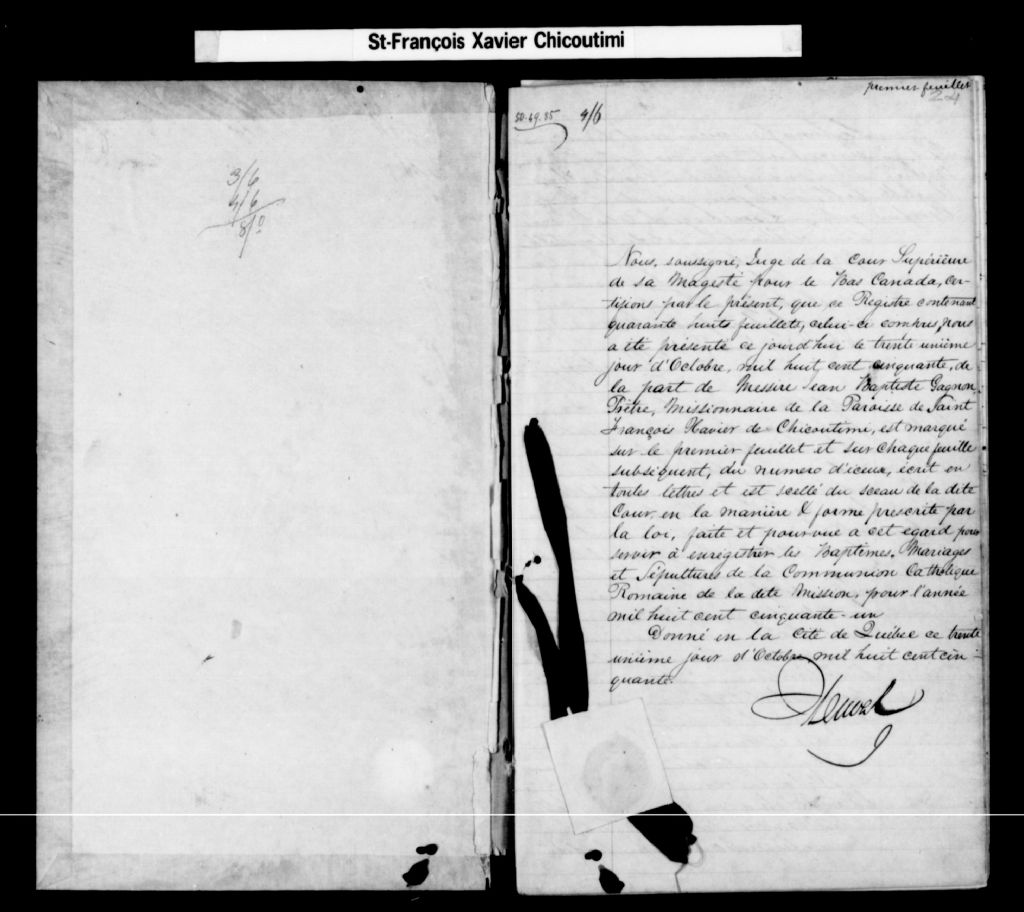 St-François Xavier Chicoutimi
premier feuillet
24
50.49.85 4/6
3/6
4/6
8/0
Nous, soussigné, Juge de la Cour Supérieure
de sa Magesté pour le Bas Canada, cer-
tifions par le présent, que ce Registre contenant
quarante huits feuillets, celui-ci compris, nous
a été présenté ce jourd'hui le trente unième
jour d'Octobre, mil huit cent cinquante, de
la part de Messire Jean Baptiste Gagnon,
Prêtre, Missionnaire de la Paroisse de Saint
François Xavier de Chicoutimi, est marqué
sur le premier feuillet et sur chaque feuille
subséquent, du numero d'iceux, écrit en
toutes lettres et est scellé du sceau de la dite
Cour, en la manière & forme prescrite par
la loi, faite et pourvue a cet egard pour
servir à enregistrer les Baptêmes, Mariages
et Sépultures de la Communion Catholique
Romaine de la dite Mission, pour l'année
mil huit cent cinquante-un
Donné en la Cité de Québec ce trente
unième jour d'Octobre mil huit cent cin-
quante.